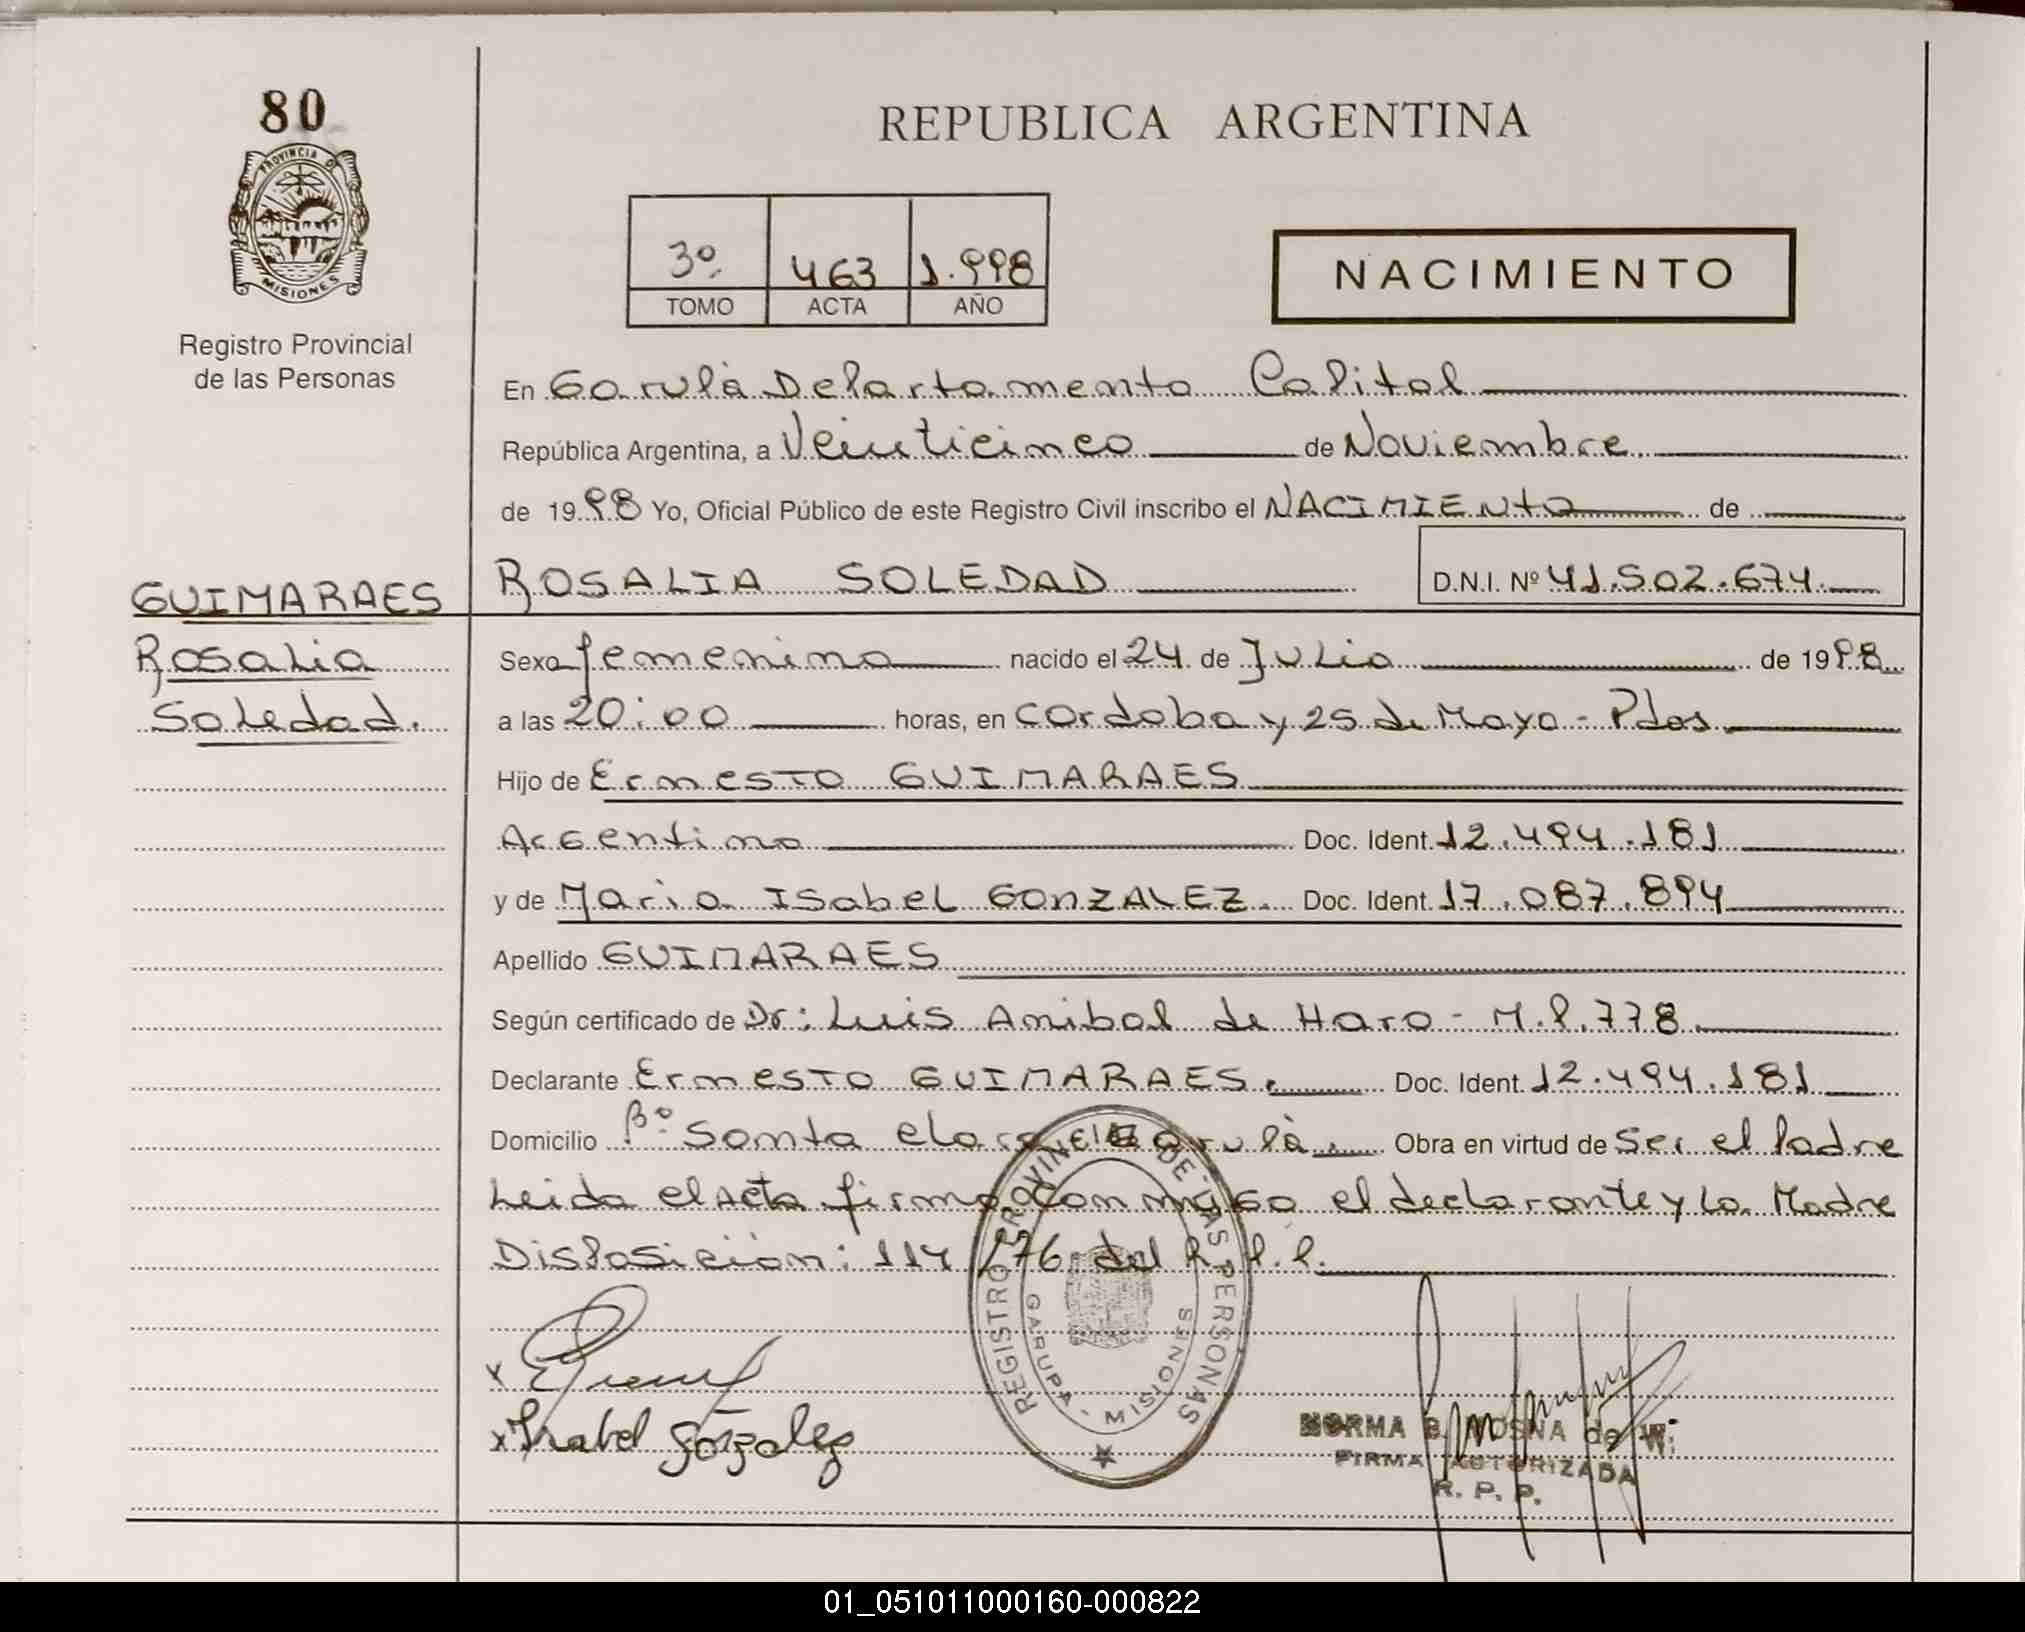 80
PROVINCIA D
MISIONES
Registro Provincial
de las Personas
REPUBLICA ARGENTINA
3º 463 1.998
TOMO ACTA AÑO
NACIMIENTO
En Garupá Departamento Capital
República Argentina, a Veinticinco de Noviembre
de 1998 Yo, Oficial Público de este Registro Civil inscribo el NACIMIENTO de
GUIMARAES
Rosalia
Soledad.
ROSALIA SOLEDAD D.N.I. Nº 41.502.674.
Sexo femenino nacido el 24 de Julio de 1998
a las 20:00 horas, en Cordoba y 25 de Mayo - Pdas
Hijo de Ernesto GUIMARAES
Argentino Doc. Ident. 12.494.181
y de Maria Isabel GONZALEZ. Doc. Ident. 17.087.894
Apellido GUIMARAES
Según certificado de Dr: Luis Anibal de Haro - M.P.778
Declarante Ernesto GUIMARAES. Doc. Ident. 12.494.181
Domicilio Bº Santa Clara Garupá. Obra en virtud de Ser el Padre
Leida el Acta firma conmigo el declarante y la Madre
Disposición: 114/76 del R.P.P.
REGISTRO PROVINCIAL DE LAS PERSONAS
GARUPA - MISIONES
x Isabel González
NORMA B. MOSNA de W.
FIRMA AUTORIZADA
R. P. P.
01_051011000160-000822